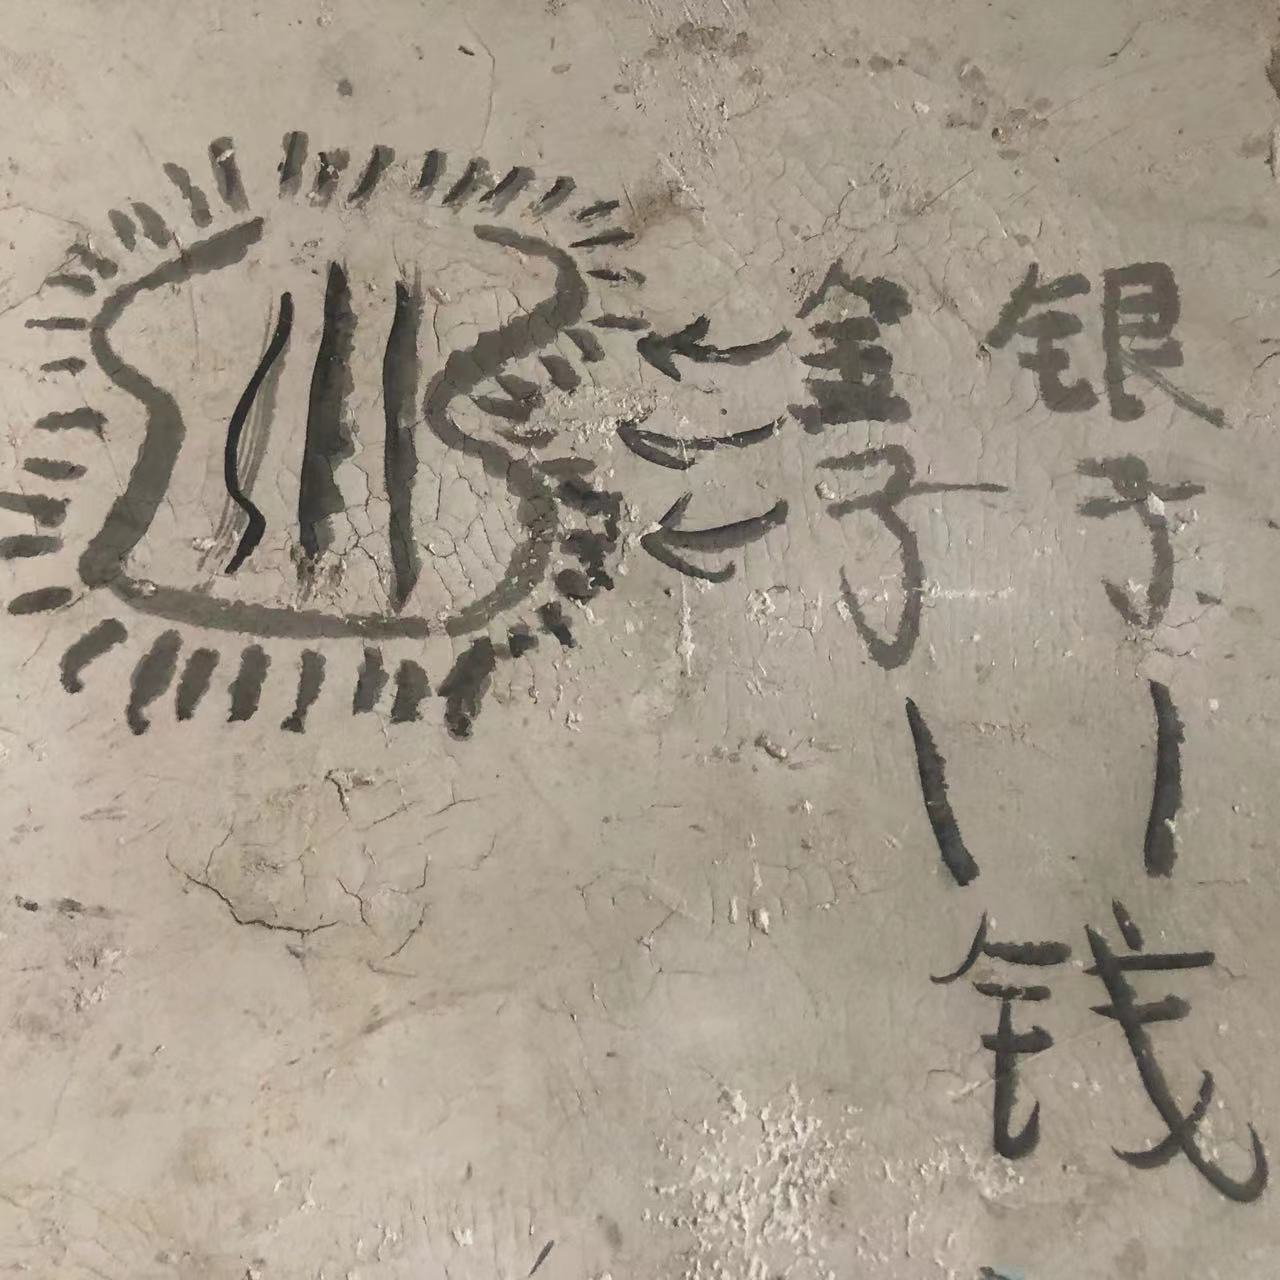 金子
银子
钱